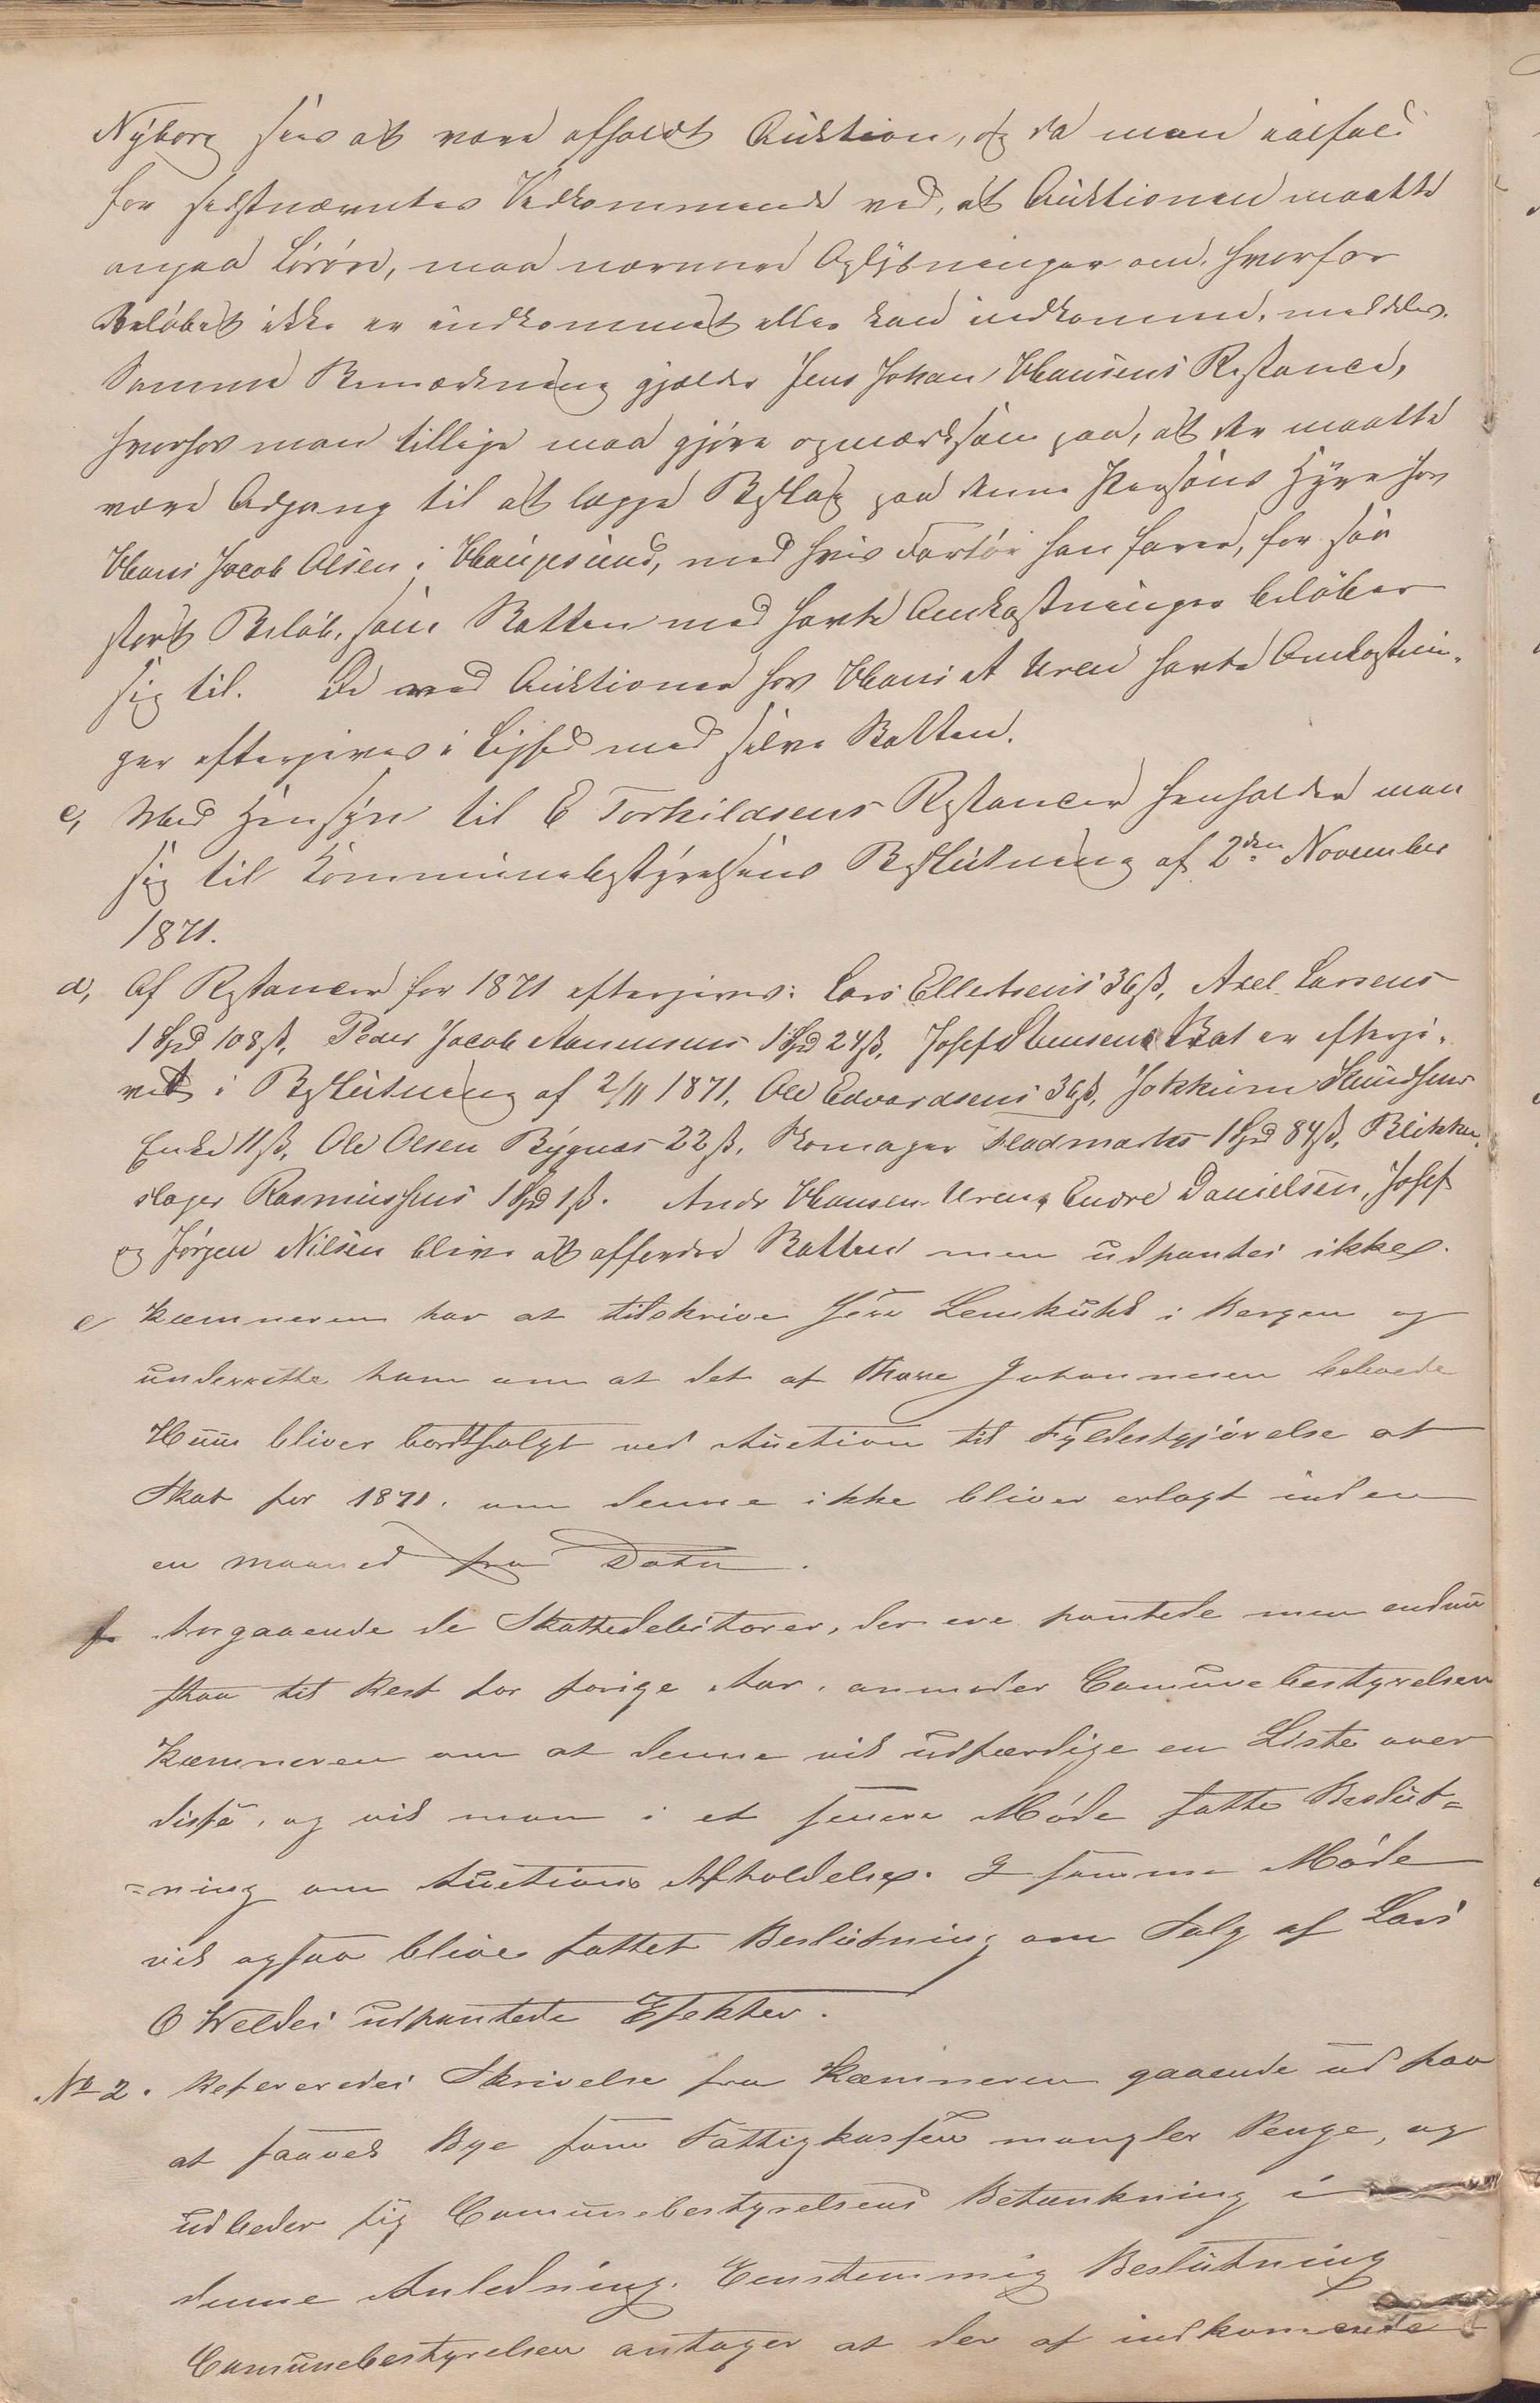 Nyborg sees at være afholdt Auktion, og da man ialfald
for sidstnævntes Vedkommende ved, at Auktionen maatte
angaa Löröre, maa nærmere Oplysninger om, hvorfor
Belöbet ikke er indkommet eller kan indkomme, meddeles.
Samme Bemærkning gjælder Jens Johan Hansens Restance,
hvorhos man tillige maa gjöre opmærksom paa, at der maatte
være Adgang til at lægge Beslag paa denne Persons Hyre hos
Hans Jacob Olsen i Haugesund, med hvis Fartöi han farer, for saa
stort Belöb, som Skatten med havte Omkostninger belöber
sig til. De ved Auktionen hos Hans A Uren havte Omkostnin-
ger eftergives i Lighed med selve Skatten.
c, Med Hensyn til E Torkildsens Restancer henholder man
sig til Kommunebestyrelsens Beslutning af 2den November
1871.
d, Af Restancer for 1871 eftergives: Lars Ellertsens 36 ß, Axel Larsens
1 Spd 108 ß, Peder Jacob Aanensens 1 Spd 24 ß, Josef Svensens Skat er eftergi-
vet i Beslutning af 2/11 1871, Ole Edvardsens 36 ß, Jokkum Knudsens
Enke 11 ß, Ole Olsen Rygnes 22 ß, Skomager Fladmarks 1 Spd 84 ß, Blikken-
slager Rasmussens 1 Spd 1 ß. Andr Hansen Uren, Endre Danielsen, Josef
og Jörgen Nilsen blive at affordre Skatten men udpantes ikke.
e Kæmneren har at tilskrive Herr Lemkuhl i Bergen og
underrette ham om at det af Thore Johannesen beboede
Huus bliver bortsolgt ved Auction til Fyldestgjörelse at
Skat for 1871. om denne ikke bliver erlagt inden
en maaned fra Dato.
f. Angaaende de Skattedebitorer, der ere pantede men endnu
staa til Rest for forige Aar, anmoder Comunebestyrelsen
Kæmneren om at denne vil udfærdige en Liste over
disse, og vil man i et senere Möde fatte Beslut=
=ning om Auctions Afholdelse. I samme Möde
vil ogsaa blive fattet Beslutning om Salg af Lars
O Weldes udpantede Efekter.
No 2. Refereredes Skrivelse fra Kæmneren gaaende ud paa
at saavel Bye som Fattigkassen mangler Penge, og
udbeder sig Comunebestyrelsens Betænkning i
denne Anledning. Eenstemmig Beslutning
Comunebestyrelsen antager at der af indkomende